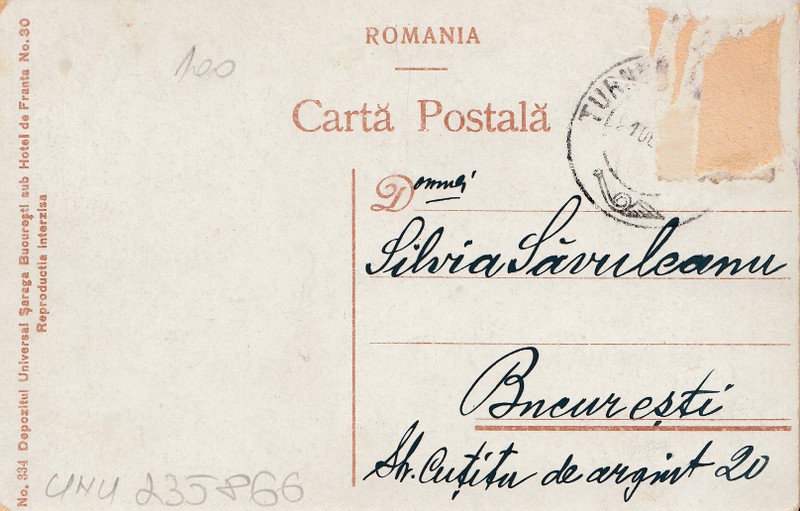 ROMANIA
Cartă Postală
100
TURN
Domnei
Silvia Săvuleanu
București
Str. Cuțitu de argint 20
No. 334 Depozitul Universal Șaraga București sub Hotel de Franta No. 30
Reproductia interzisa
UNU 235866